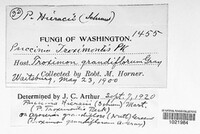 52 P. Hieracii (Schum)
1455
FUNGI OF WASHINGTON.
Puccinia Troximontis Pk
Host, Troximon grandiflorum Gray
Collected by Robt. M. Horner.
Waitsburg, May 23, 1900
Determined by J. C. Arthur. Sept. 7, 1920
Puccinia Hieracii (Schum) Mart.
(P. Troximontis Peck)
on Agoseris grandiflora (Nutt.) Greene
(Troximon grandiflorum A. Gray)
1021984